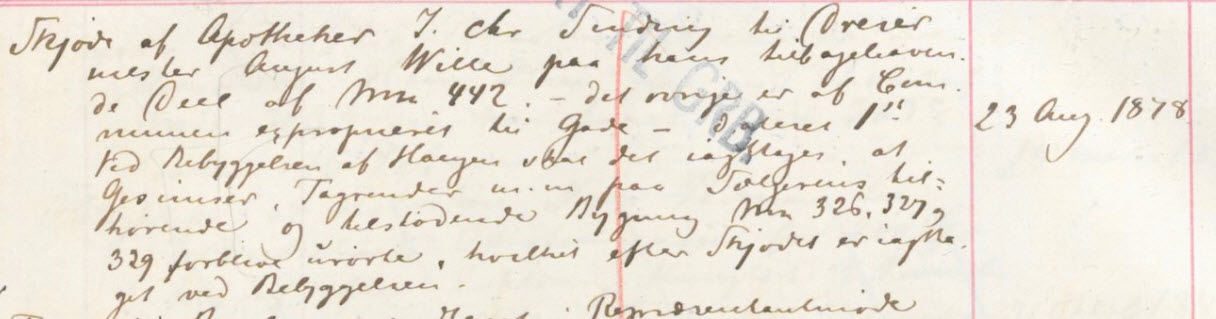 Skjøde af Apotheker J. Chr Sinding til Dreier
mester August Wille paa hans tilbagehaven-
de Deel af Mn 442. – det øvrige er af Com-
munen exproprieret til Gade – dateret 1st
23 Aug. 1878
Ved Bebyggelsen af Haugen maa det iagttages, at
Gesimser, Tagrender m. m. paa Sælgerens til-
hørende og tilstødende Bygning Mn 326, 327 og
329 forblive urørte, hvilket efter Skjødet er iagtta-
get ved Bebyggelsen.
Repræsentantmøde
TIL GRB.